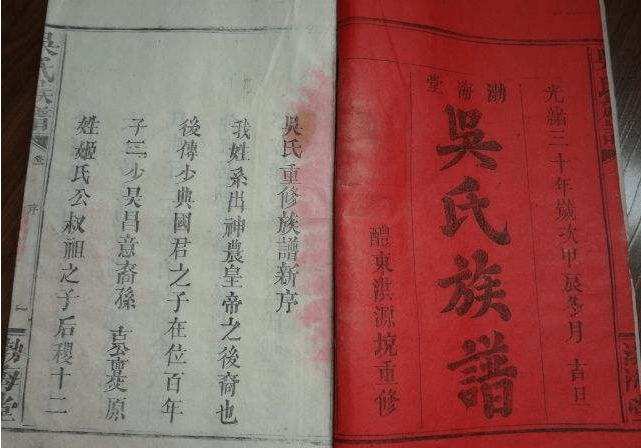 光緒三十年歲次甲辰冬月 吉日
渤海堂
吳氏族譜
醴東淇源坑重修
吳氏重修族譜新序
我姓系出神農皇帝之後裔也
後傳少典國君之子在位百年
子三少昊昌意裔孫 古公亶父原
姓姬氏公叔祖之子后稷十二
吳氏族譜 卷 序 一 渤海堂